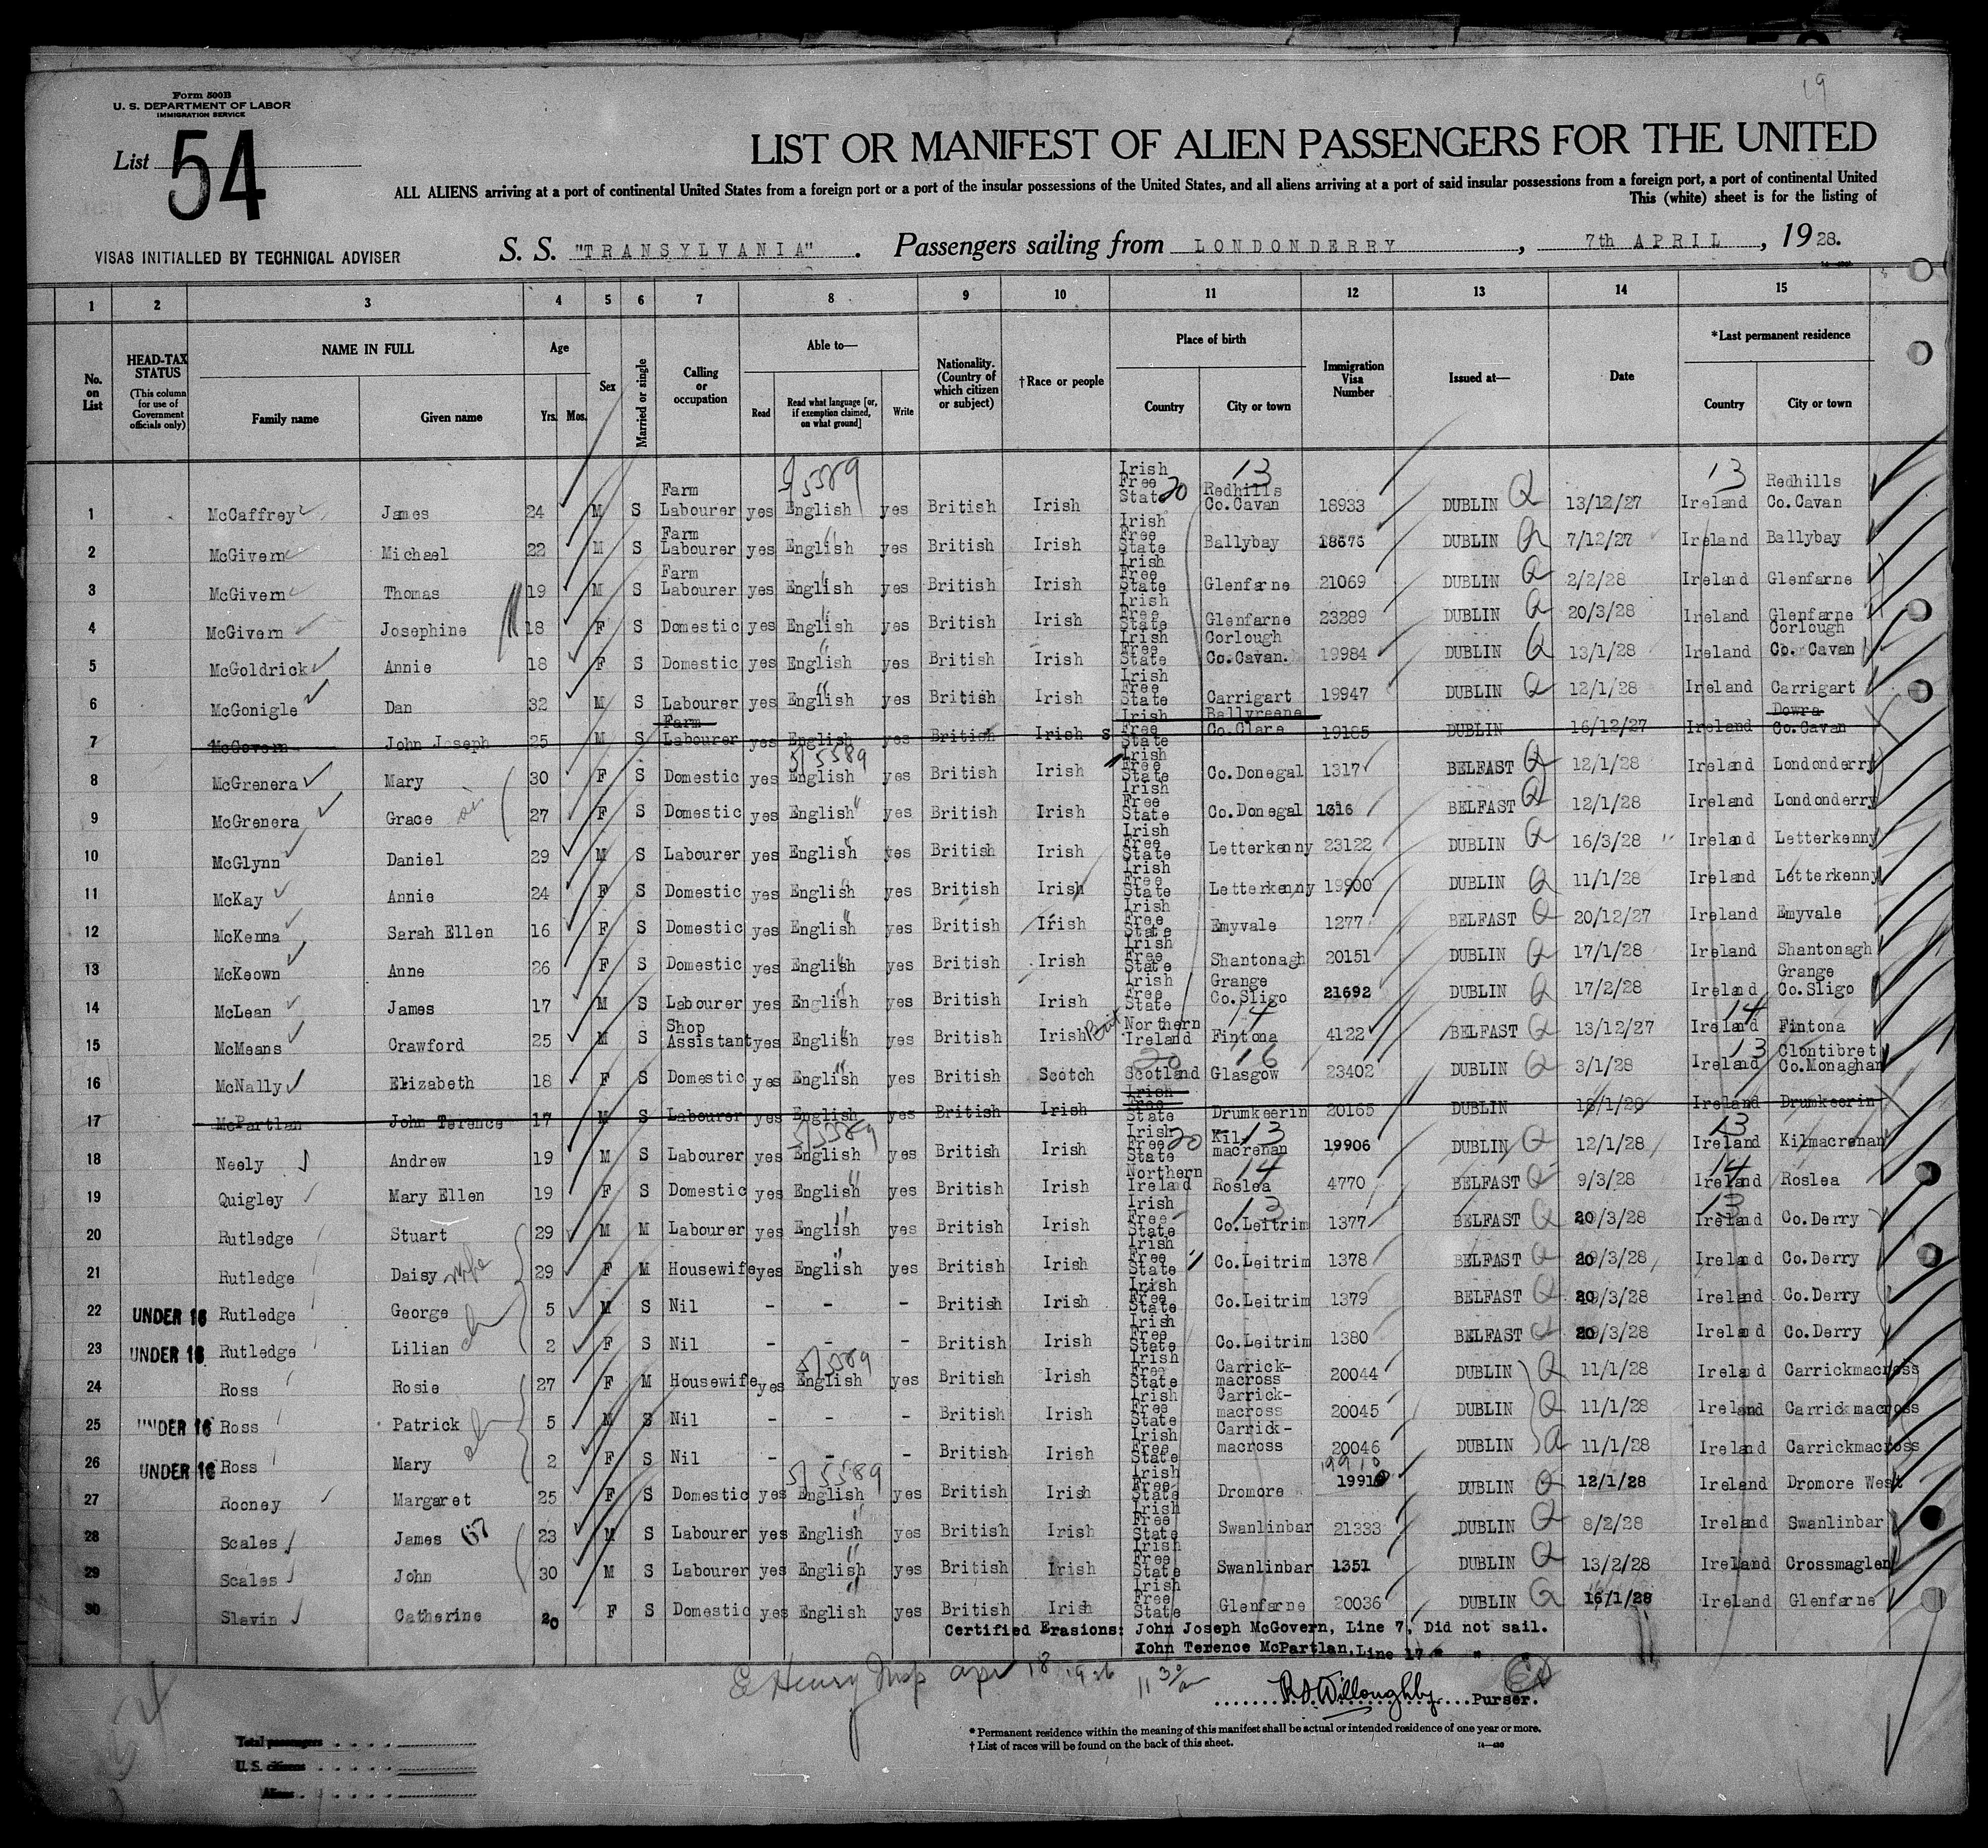 19
Form 500B
U. S. DEPARTMENT OF LABOR
IMMIGRATION SERVICE
List 54
LIST OR MANIFEST OF ALIEN PASSENGERS FOR THE UNITED
ALL ALIENS arriving at a port of continental United States from a foreign port or a port of the insular possessions of the United States, and all aliens arriving at a port of said insular possessions from a foreign port, a port of continental United
This (white) sheet is for the listing of
VISAS INITIALLED BY TECHNICAL ADVISER
S. S. "TRANSYLVANIA". Passengers sailing from LONDONDERRY, 7th APRIL, 1928.
1 2 3 4 5 6 7 8 9 10 11 12 13 14 15
No. on List HEAD-TAX STATUS (This column for use of Government officials only) NAME IN FULL Family name Given name Age Yrs. Mos. Sex Married or single Calling or occupation Able to— Read Read what language [or, if exemption claimed, on what ground] Write Nationality. (Country of which citizen or subject) †Race or people Place of birth Country City or town Immigration Visa Number Issued at— Date *Last permanent residence Country City or town
1 McCaffrey James 24 M S Farm Labourer yes English yes British Irish Irish Free State Redhills Co.Cavan 18933 DUBLIN 13/12/27 Ireland Redhills Co.Cavan
2 McGivern Michael 22 M S Farm Labourer yes English yes British Irish Irish Free State Ballybay 18676 DUBLIN 7/12/27 Ireland Ballybay
3 McGivern Thomas 19 M S Farm Labourer yes English yes British Irish Irish Free State Glenfarne 21069 DUBLIN 2/2/28 Ireland Glenfarne
4 McGivern Josephine 18 F S Domestic yes English yes British Irish Irish Free State Glenfarne 23289 DUBLIN 20/3/28 Ireland Glenfarne
5 McGoldrick Annie 18 F S Domestic yes English yes British Irish Irish Free State Corlough Co.Cavan. 19984 DUBLIN 13/1/28 Ireland Corlough Co. Cavan
6 McGonigle Dan 32 M S Labourer yes English yes British Irish Irish Free State Carrigart 19947 DUBLIN 12/1/28 Ireland Carrigart
7 McGovern John Joseph 25 M S Farm Labourer yes English yes British Irish S Irish Free State Ballyreene Co.Clare 19185 DUBLIN 16/12/27 Ireland Dowra Co.Cavan
8 McGrenera Mary 30 F S Domestic yes English yes British Irish Irish Free State Co.Donegal 1317 BELFAST 12/1/28 Ireland Londonderry
9 McGrenera Grace 27 F S Domestic yes English yes British Irish Irish Free State Co.Donegal 1316 BELFAST 12/1/28 Ireland Londonderry
10 McGlynn Daniel 29 M S Labourer yes English yes British Irish Irish Free State Letterkenny 23122 DUBLIN 16/3/28 Ireland Letterkenny
11 McKay Annie 24 F S Domestic yes English yes British Irish Irish Free State Letterkenny 19900 DUBLIN 11/1/28 Ireland Letterkenny
12 McKenna Sarah Ellen 16 F S Domestic yes English yes British Irish Irish Free State Emyvale 1277 BELFAST 20/12/27 Ireland Emyvale
13 McKeown Anne 26 F S Domestic yes English yes British Irish Irish Free State Shantonagh 20151 DUBLIN 17/1/28 Ireland Shantonagh
14 McLean James 17 M S Labourer yes English yes British Irish Irish Free State Grange Co.Sligo 21692 DUBLIN 17/2/28 Ireland Grange Co.Sligo
15 McMeans Crawford 25 M S Shop Assistant yes English yes British Irish Northern Ireland Fintona 4122 BELFAST 13/12/27 Ireland Fintona
16 McNally Elizabeth 18 F S Domestic yes English yes British Scotch Scotland Glasgow 23402 DUBLIN 3/1/28 Ireland Clontibret Co.Monaghan
17 McPartlan John Terence 17 M S Labourer yes English yes British Irish Irish Free State Drumkeerin 20165 DUBLIN Ireland Drumkeerin
18 Neely Andrew 19 M S Labourer yes English yes British Irish Irish Free State Kil-macrenan 19906 DUBLIN 12/1/28 Ireland Kilmacrenan
19 Quigley Mary Ellen 19 F S Domestic yes English yes British Irish Northern Ireland Roslea 4770 BELFAST 9/3/28 Ireland Roslea
20 Rutledge Stuart 29 M M Labourer yes English yes British Irish Irish Free State Co.Leitrim 1377 BELFAST 20/3/28 Ireland Co.Derry
21 Rutledge Daisy wife 29 F M Housewife yes English yes British Irish Irish Free State Co.Leitrim 1378 BELFAST 20/3/28 Ireland Co.Derry
22 UNDER 16 Rutledge George 5 M S Nil - - - British Irish Irish Free State Co.Leitrim 1379 BELFAST 20/3/28 Ireland Co.Derry
23 UNDER 16 Rutledge Lilian 2 F S Nil - - - British Irish Irish Free State Co.Leitrim 1380 BELFAST 20/3/28 Ireland Co.Derry
24 Ross Rosie 27 F M Housewife yes English yes British Irish Irish Free State Carrick-macross 20044 DUBLIN 11/1/28 Ireland Carrickmacross
25 UNDER 16 Ross Patrick 5 M S Nil - - - British Irish Irish Free State Carrick-macross 20045 DUBLIN 11/1/28 Ireland Carrickmacross
26 UNDER 16 Ross Mary 2 F S Nil - - - British Irish Irish Free State Carrick-macross 20046 DUBLIN 11/1/28 Ireland Carrickmacross
27 Rooney Margaret 25 F S Domestic yes English yes British Irish Irish Free State Dromore 19910 DUBLIN 12/1/28 Ireland Dromore West
28 Scales James 23 M S Labourer yes English yes British Irish Irish Free State Swanlinbar 21333 DUBLIN 8/2/28 Ireland Swanlinbar
29 Scales John 30 M S Labourer yes English yes British Irish Irish Free State Swanlinbar 1351 DUBLIN 13/2/28 Ireland Crossmaglen
30 Slavin Catherine 20 F S Domestic yes English yes British Irish Irish Free State Glenfarne 20036 DUBLIN 16/1/28 Ireland Glenfarne
Certified Erasions: John Joseph McGovern, Line 7, Did not sail.
John Terence McPartlan, Line 17 " "
E Henry
R.D.Willoughby Purser.
* Permanent residence within the meaning of this manifest shall be actual or intended residence of one year or more.
† List of races will be found on the back of this sheet.
Total passengers
U. S. citizens
Aliens